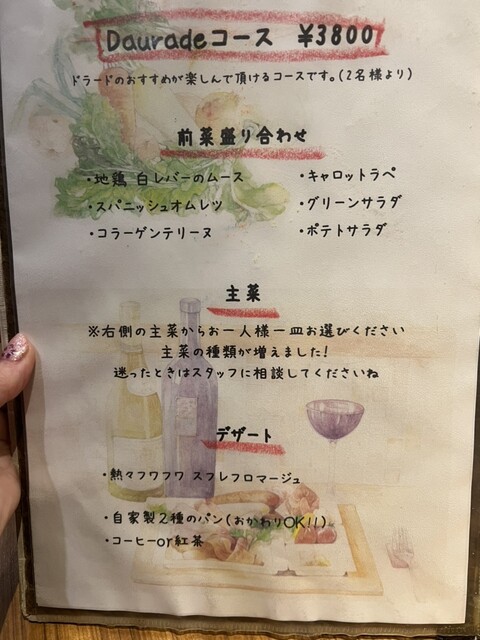 Dauradeコース ¥3800
ドラードのおすすめが楽しんで頂けるコースです。(2名様より)
前菜盛り合わせ
・地鶏 白レバーのムース
・キャロットラペ
・スパニッシュオムレツ
・グリーンサラダ
・コラーゲンテリーヌ
・ポテトサラダ
主菜
※右側の主菜からお一人様一皿お選びください
主菜の種類が増えました!
迷ったときはスタッフに相談してくださいね
デザート
・熱々フワフワ スフレフロマージュ
・自家製2種のパン(おかわりOK!!)
・コーヒーor紅茶